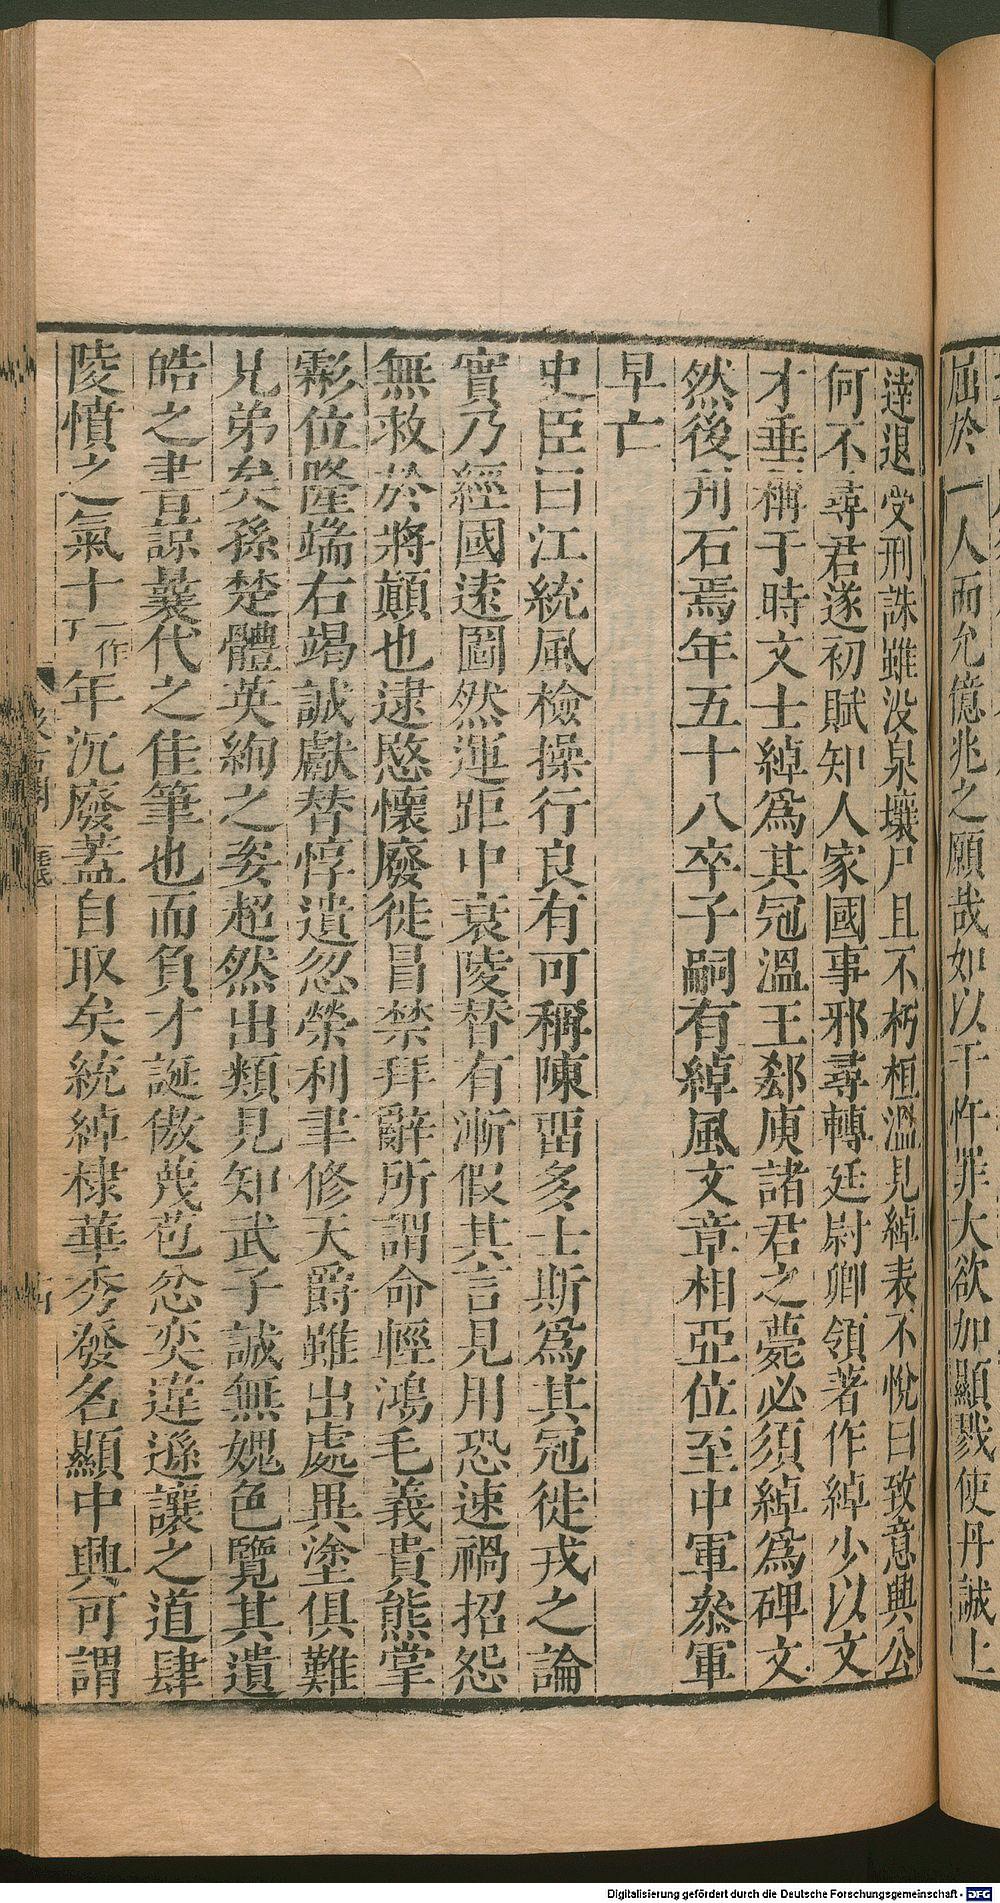 屈於一人而允億兆之願哉如以干忤罪大欲加顯戮使丹誠上
達退受刑誅雖没泉壤尸且不朽桓溫見綽表不悅曰致意興公
何不尋君遂初賦知人家國事邪尋轉廷尉卿領著作綽少以文
才垂稱于時文士綽爲其冠溫王郄庾諸君之薨必須綽爲碑文
然後刋石焉年五十八卒子嗣有綽風文章相亞位至中軍叅軍
早亡
史臣曰江統風檢操行良有可稱陳畱多士斯爲其冠徙戎之論
實乃經國遠圖然運距中衰陵替有漸假其言見用恐速禍招怨
無救於將顛也逮愍懷廢徙冒禁拜辭所謂命輕鴻毛義貴熊掌
虨位隆端右竭誠獻替惇遺忽榮利聿修天爵雖出處異塗俱難
兄弟矣孫楚體英絢之姿超然出類見知武子誠無媿色覽其遺
皓之書諒曩代之佳筆也而負才誕傲蔑苞忿奕違遜讓之道肆
陵憤之氣十一作丁年沉廢蓋自取矣統綽棣華秀發名顯中興可謂
汲古閣
Digitalisierung gefördert durch die Deutsche Forschungsgemeinschaft - DFG